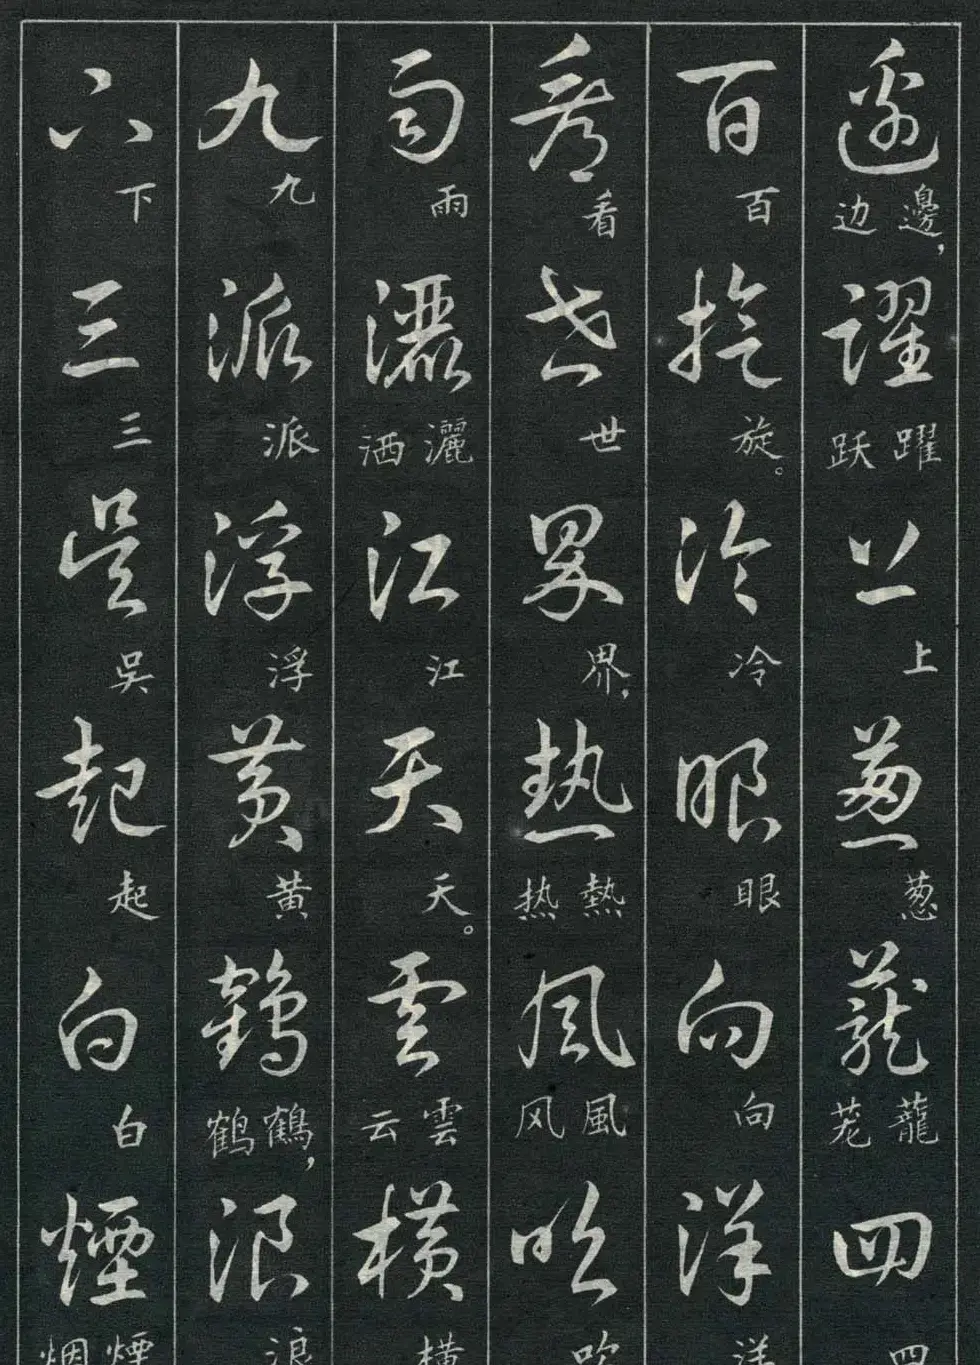 邊躍上葱蘢四
邊,边 躍跃 上 葱 蘢茏 四
百旋冷眼向洋
百 旋。 冷 眼 向 洋
看世界熱風吹
看 世 界, 熱热 風风 吹
雨灑江天雲横
雨 灑洒 江 天。 雲云 横
九派浮黄鶴浪
九 派 浮 黄 鶴,鹤 浪
下三吴起白煙
下 三 吴 起 白 煙烟